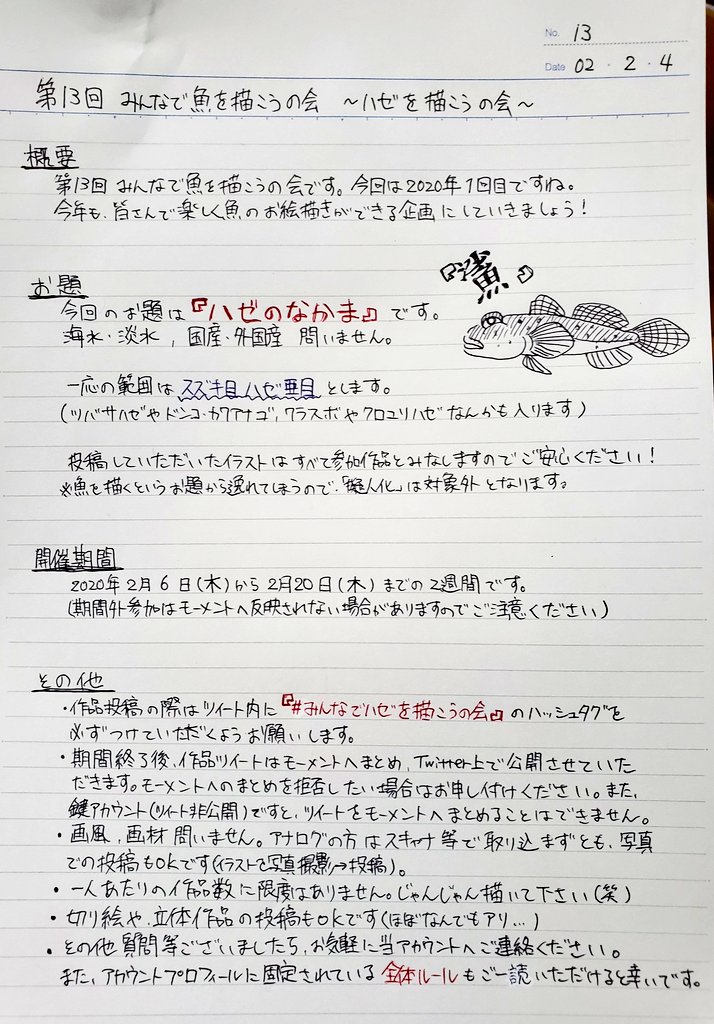 No. 13
Date 02・2・4
第13回 みんなで魚を描こうの会 ～ハゼを描こうの会～
概要
第13回 みんなで魚を描こうの会です。今回は2020年1回目ですね。
今年も、皆さんで楽しく魚のお絵描きができる企画にしていきましょう！
お題
今回のお題は『ハゼのなかま』です。
海水・淡水，国産・外国産 問いません。
『鯊』
一応の範囲はスズキ目ハゼ亜目とします。
(ツバサハゼやドンコ・カワアナゴ，ワラスボやクロユリハゼなんかも入ります)
投稿していただいたイラストはすべて参加作品とみなしますのでご安心ください！
※魚を描くというお題から逸れてしまうので、「擬人化」は対象外となります。
開催期間
2020年2月6日(木)から2月20日(木)までの2週間です。
(期間外参加はモーメントへ反映されない場合がありますのでご注意ください)
その他
・作品投稿の際はツイート内に『#みんなでハゼを描こうの会』のハッシュタグを
必ずつけていただくようお願いします。
・期間終了後、作品ツイートはモーメントへまとめ、Twitter上で公開させていた
だきます。モーメントへのまとめを拒否したい場合はお申し付けください。また、
鍵アカウント(ツイート非公開)ですと、ツイートをモーメントへまとめることはできません。
・画風、画材問いません。アナログの方はスキャナ等で取り込まずとも、写真
での投稿もOKです(イラストを写真撮影→投稿)。
・一人あたりの作品数に限度はありません。じゃんじゃん描いて下さい(笑)
・切り絵や、立体作品の投稿もOKです(ほぼなんでもアリ…)
・その他質問等ございましたら、お気軽に当アカウントへご連絡ください。
また、アカウントプロフィールに固定されている全体ルールもご一読いただけると幸いです。